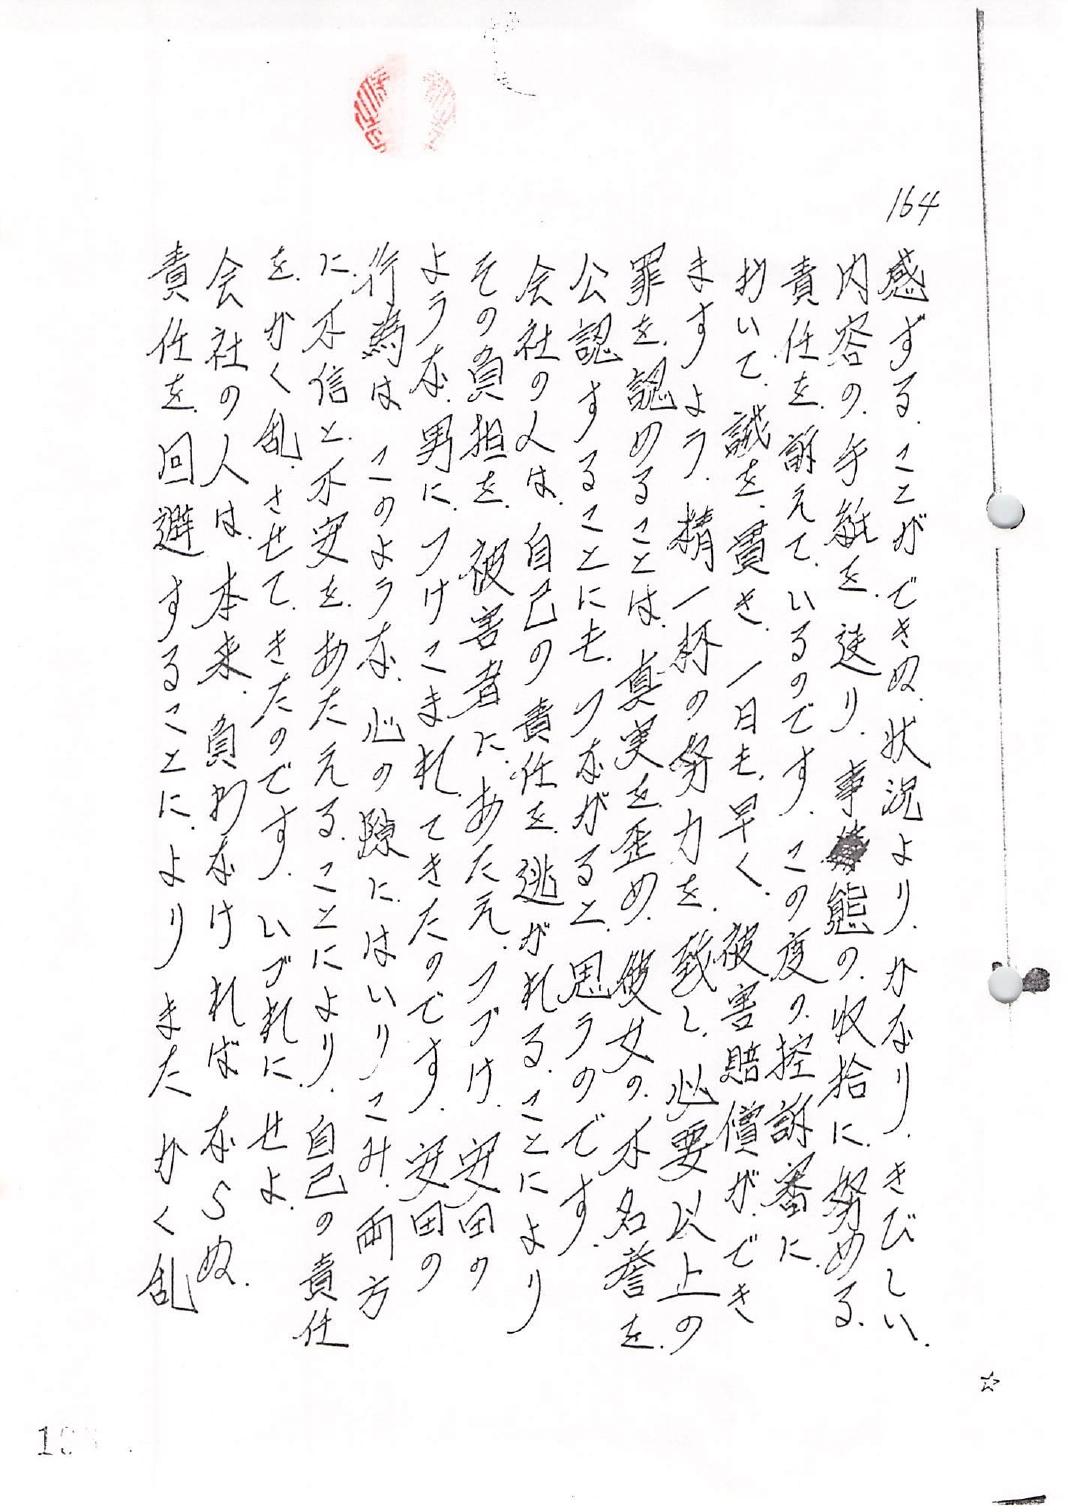 164
感ずる、ことができぬ、状況より、かなり、きびしい、
内容の、手紙を、送り、事態の、収拾に、努める、
責任を、訴えて、いるのです、この度の、控訴審に、
おいて、誠を、貫き、一日も、早く、被害賠償が、でき
ますよう、精一杯の努力を、致し、必要以上の
罪を、認めることは、真実を歪め、彼女の、不名誉を、
公認することにも、つながると、思うのです、
会社の人は、自己の責任を、逃がれる、ことにより
その負担を、被害者に、あたえ、つづけ、安田の
ような、男に、つけこまれ、てきたのです、安田の
行為は、このような、心の隙に、はいりこみ、両方
に、不信と、不安を、あたえる、ことにより、自己の責任
を、かく乱、させて、きたのです、いづれに、せよ、
会社の人は、本来、負わなければ、ならぬ、
責任を、回避することに、より、また、かく乱
☆